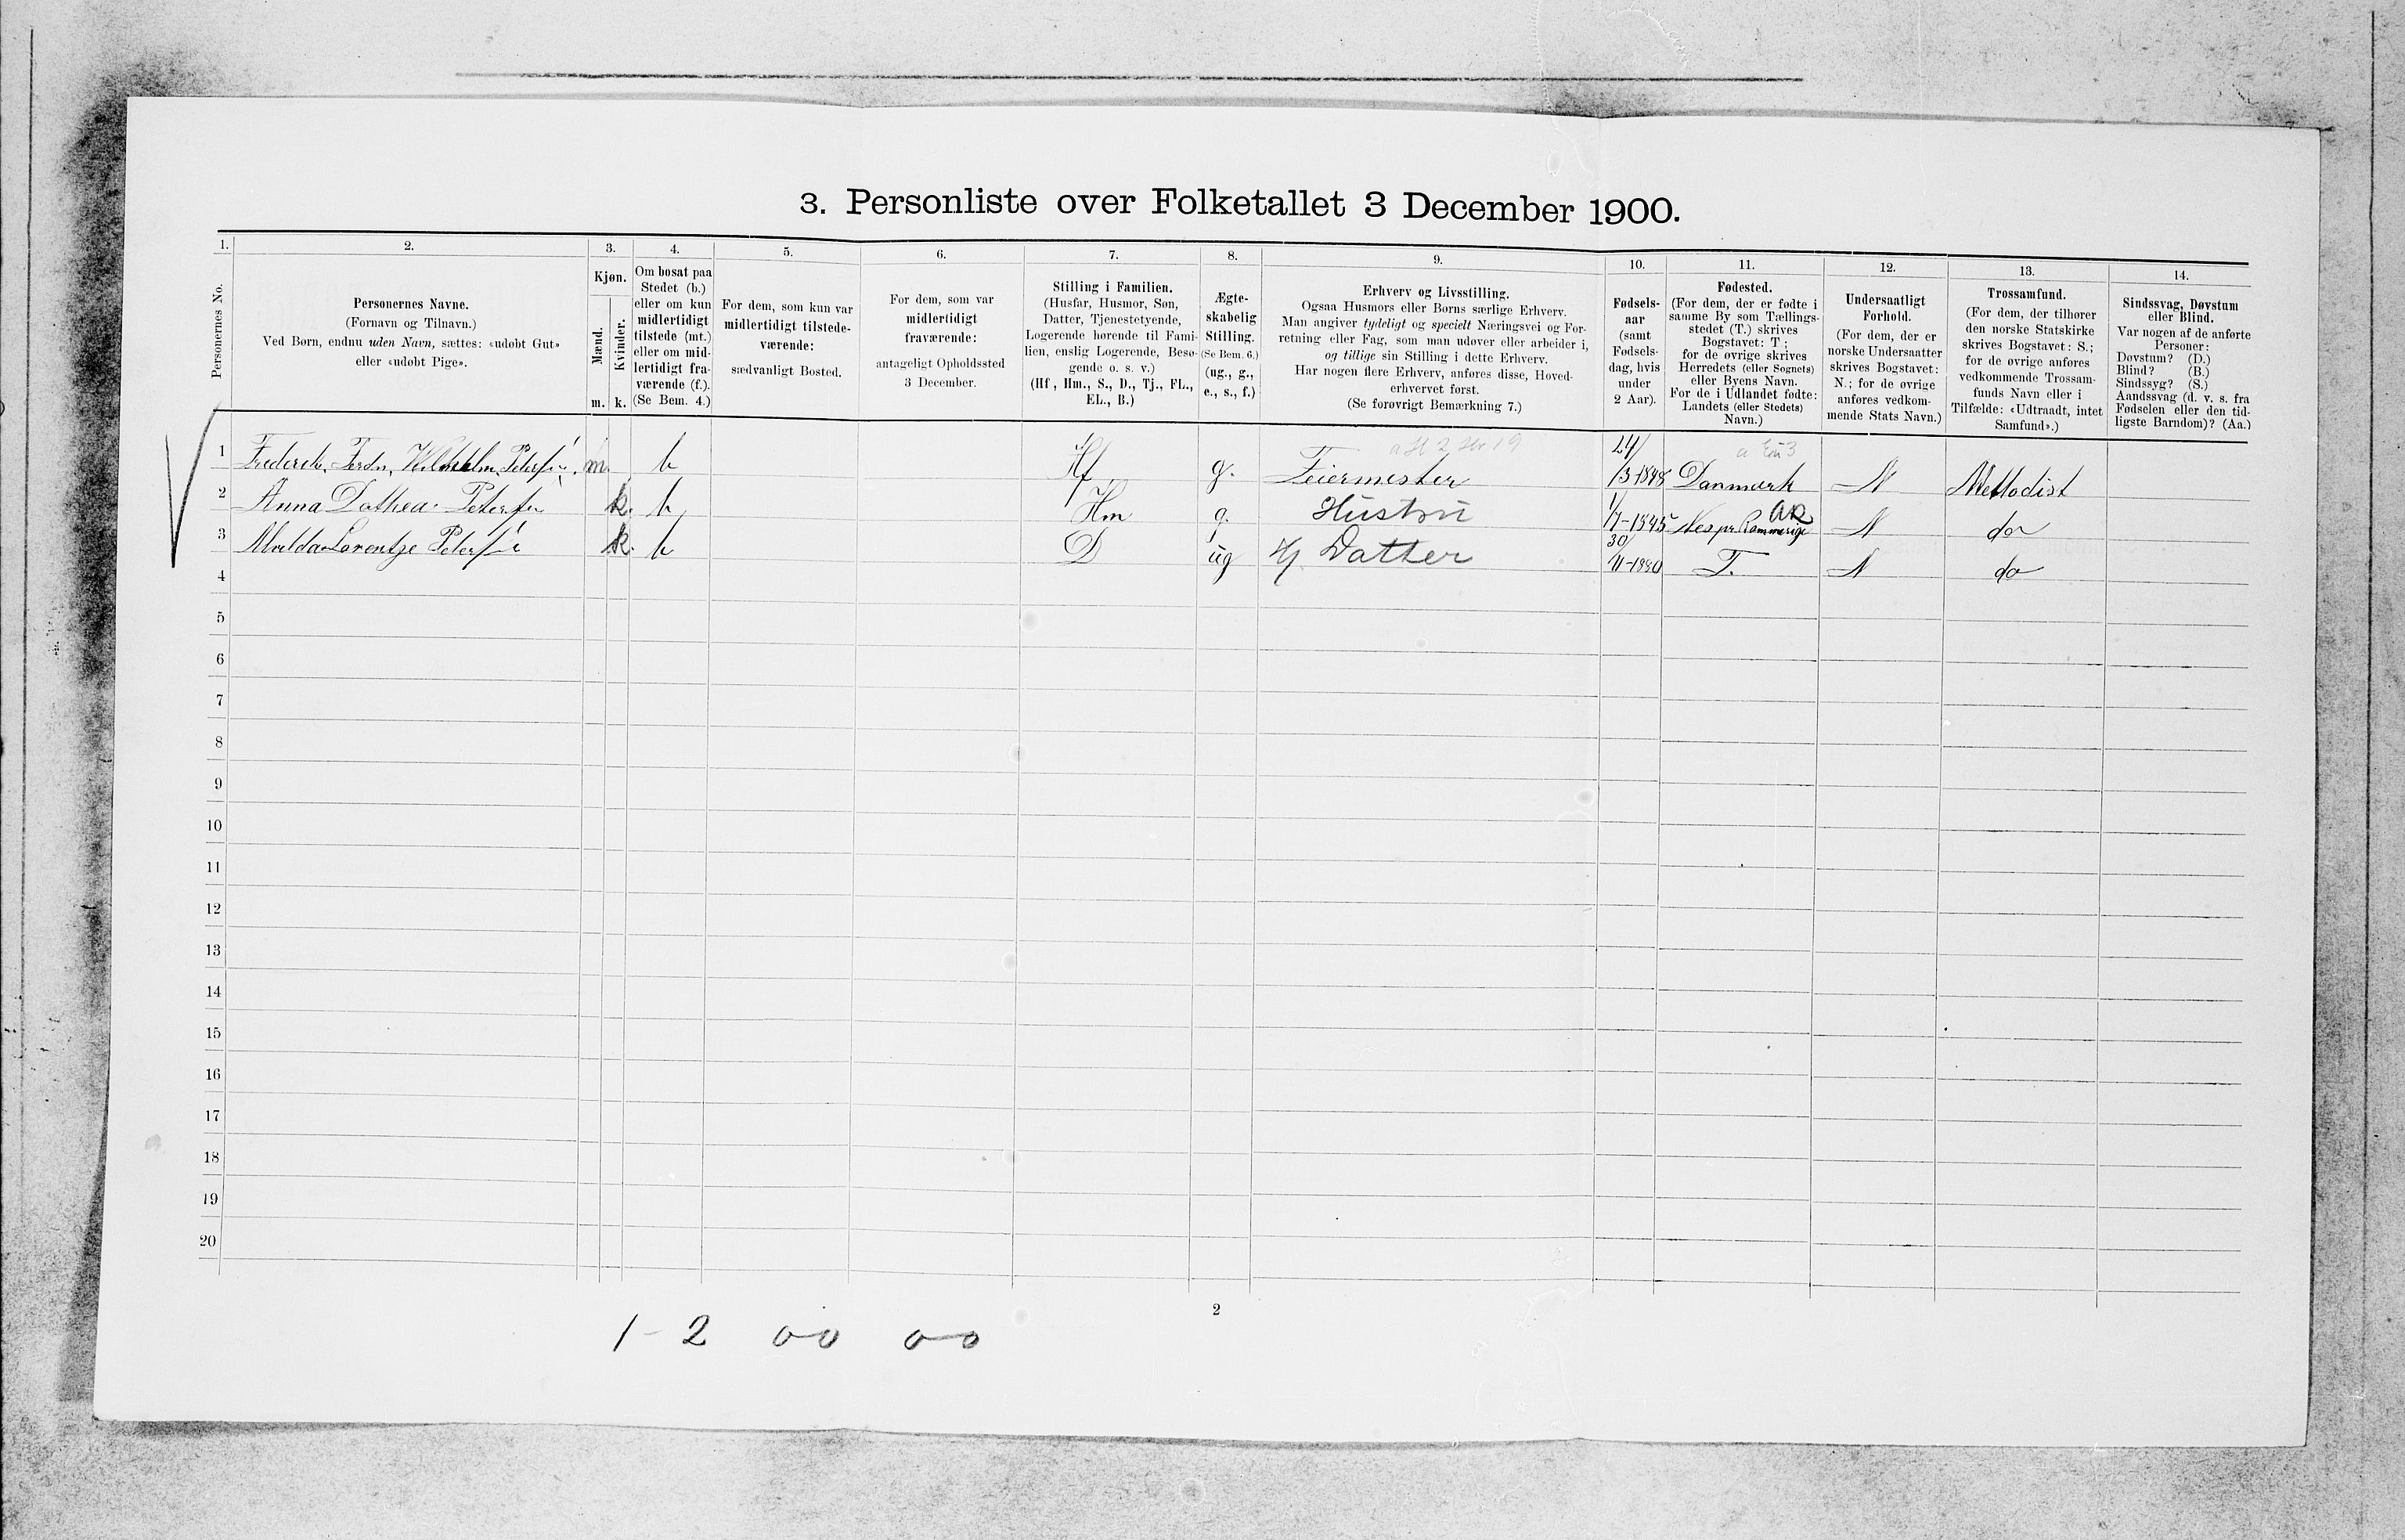 3. Personliste over Folketallet 3 December 1900.
1. 2. 3. 4. 5. 6. 7. 8. 9. 10. 11. 12. 13. 14.
Personernes No.
Personernes Navne.
(Fornavn og Tilnavn.)
Ved Børn, endnu uden Navn, sættes: «udøbt Gut»
eller «udøbt Pige».
Kjøn.
Mænd.
Kvinder.
m. k.
Om bosat paa
Stedet (b.)
eller om kun
midlertidigt
tilstede (mt.)
eller om mid-
lertidigt fra-
værende (f.).
(Se Bem. 4.)
For dem, som kun var
midlertidigt tilstede-
værende:
sædvanligt Bosted.
For dem, som var
midlertidigt
fraværende:
antageligt Opholdssted
3 December.
Stilling i Familien.
(Husfar, Husmor, Søn,
Datter, Tjenestetyende,
Logerende hørende til Fami-
lien, enslig Logerende, Besø-
gende o. s. v.)
(Hf, Hm., S., D., Tj., FL.,
EL., B.)
Ægte-
skabelig
Stilling.
(Se Bem. 6.)
(ug., g.,
e., s., f.)
Erhverv og Livsstilling.
Ogsaa Husmors eller Børns særlige Erhverv.
Man angiver tydeligt og specielt Næringsvei og For-
retning eller Fag, som man udøver eller arbeider i,
og tillige sin Stilling i dette Erhverv.
Har nogen flere Erhverv, anføres disse, Hoved-
erhvervet først.
(Se forøvrigt Bemærkning 7.)
Fødsels-
aar
(samt
Fødsels-
dag, hvis
under
2 Aar).
Fødested.
(For dem, der er fødte i
samme By som Tællings-
stedet (T.) skrives
Bogstavet: T;
for de øvrige skrives
Herredets (eller Sognets)
eller Byens Navn.
For de i Udlandet fødte:
Landets (eller Stedets)
Navn.)
Undersaatligt
Forhold.
(For dem, der er
norske Undersaatter
skrives Bogstavet:
N.; for de øvrige
anføres vedkom-
mende Stats Navn.)
Trossamfund.
(For dem, der tilhører
den norske Statskirke
skrives Bogstavet: S.;
for de øvrige anføres
vedkommende Trossam-
funds Navn eller i
Tilfælde: «Udtraadt, intet
Samfund».)
Sindssvag, Døvstum
eller Blind.
Var nogen af de anførte
Personer:
Døvstum? (D.)
Blind? (B.)
Sindssyg? (S.)
Aandssvag (d. v. s. fra
Fødselen eller den tid-
ligste Barndom)? (Aa.)
1 Frederek, Ferdn, Wilhelm Petersen. m. b Hf g. Feiermester 24/3-1848 Danmark N Methodist
2 Anna Dothea Petersen k. b Hm g. Hustru 1/7-1845 Nes pr Romerige N do
3 Malda Lorentze Petersen k. b D ug Datter 30/11-1880 T. N do
4
5
6
7
8
9
10
11
12
13
14
15
16
17
18
19
20
2
1-2 0-0 0-0